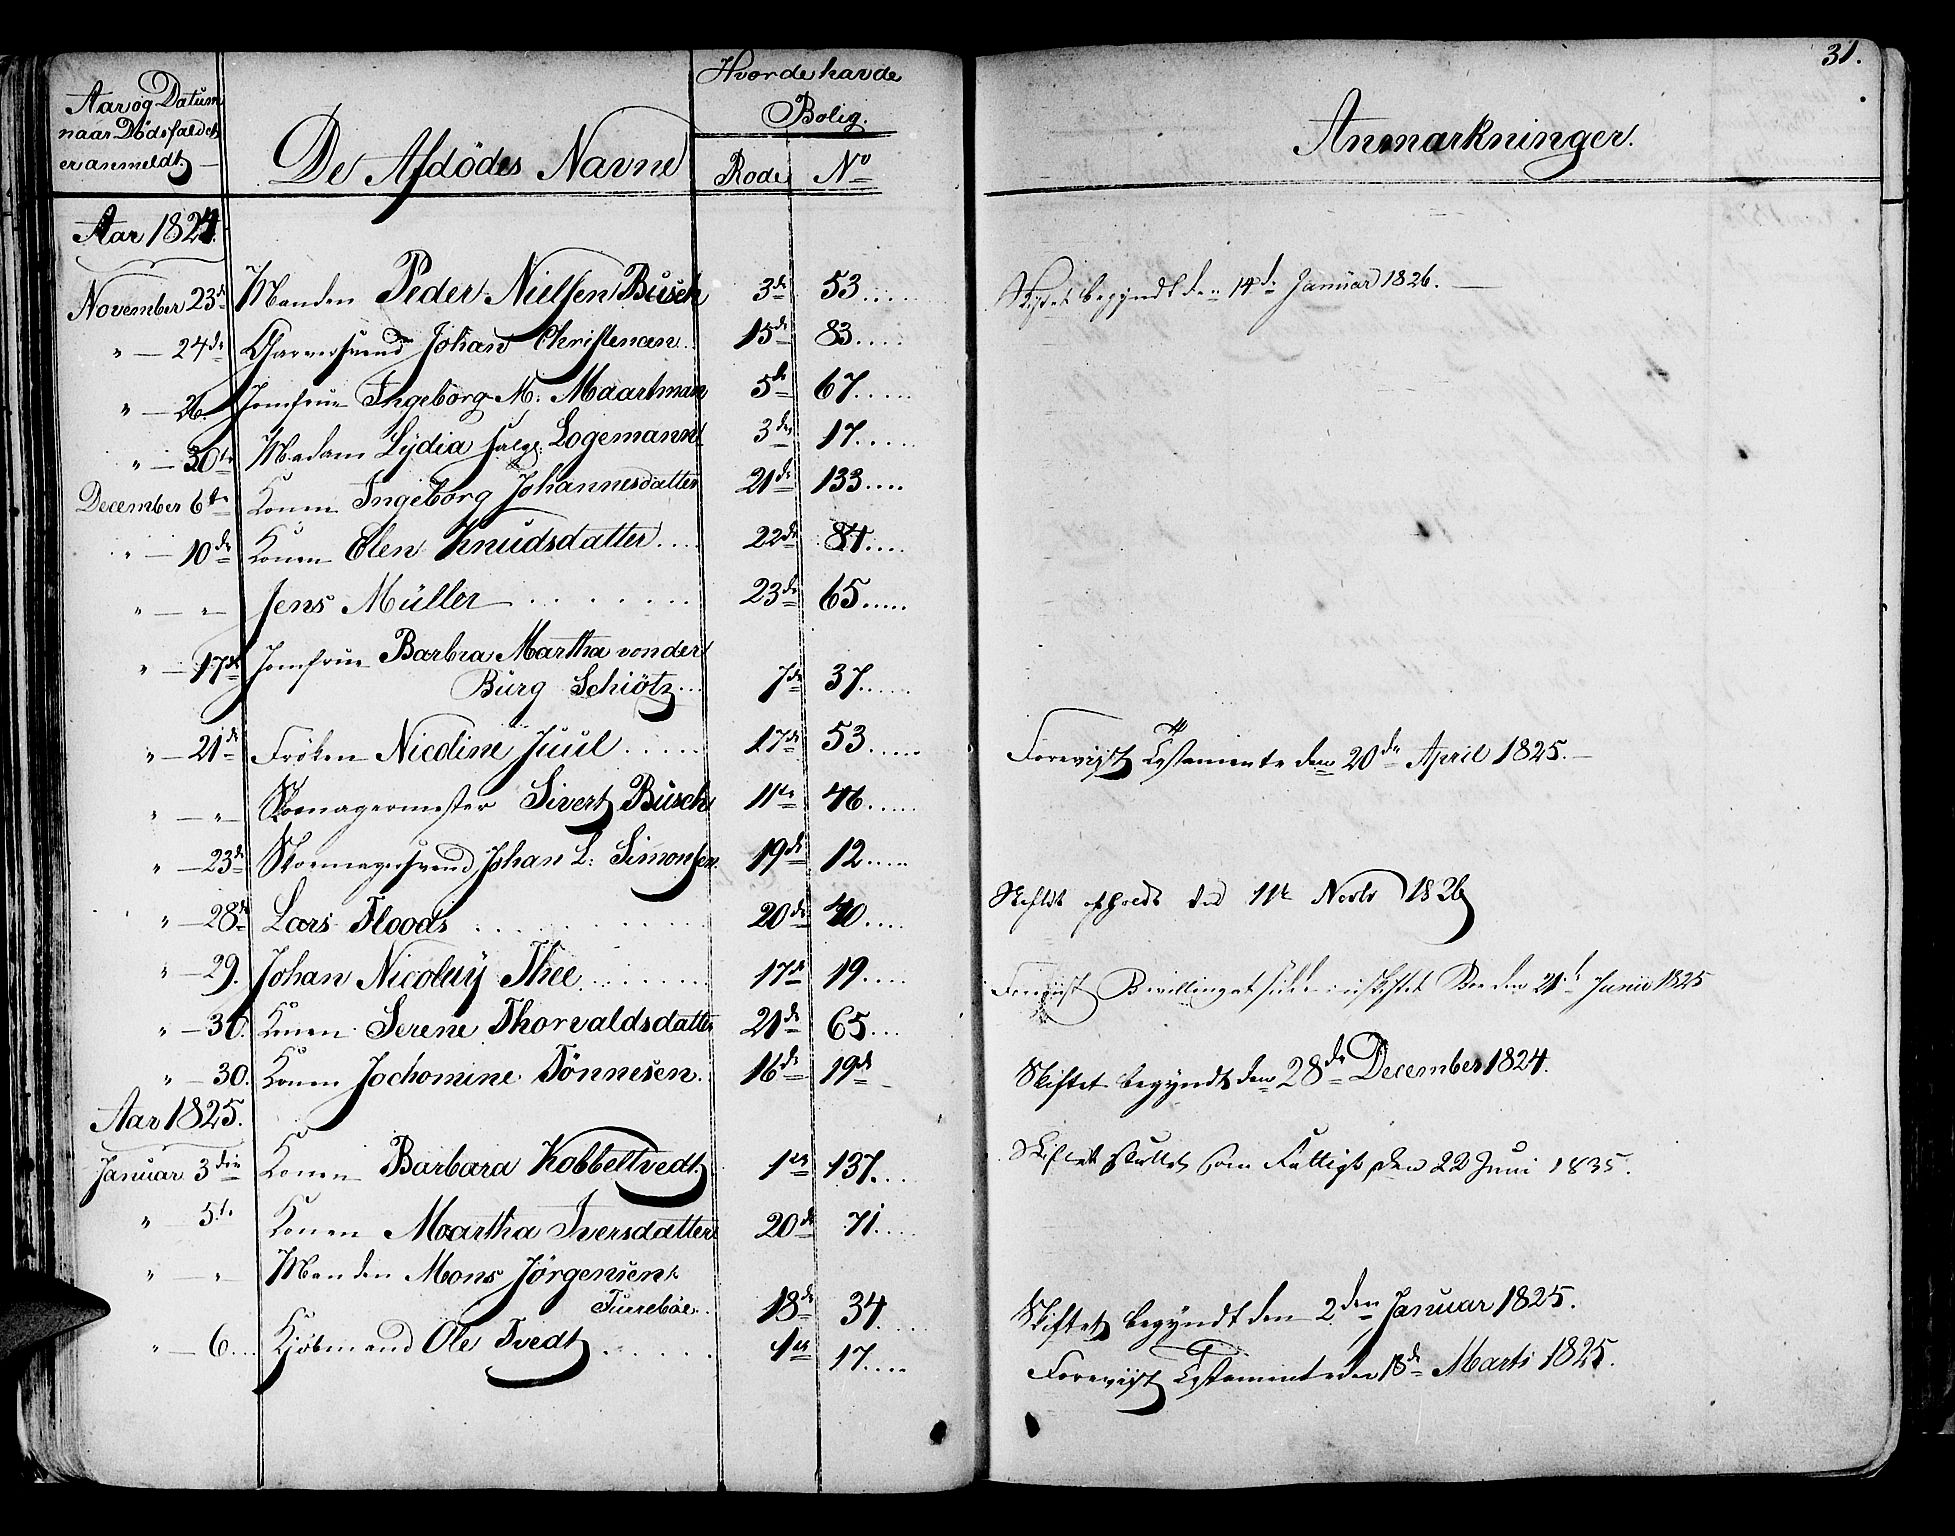 31.
Aar og Datum
naar Dødsfaldet
er anmeldt.
De Afdødes Navne
Hvor de havde
Bolig.
Rode No
Anmærkninger.
Aar 1824.
November 23de Manden Peder Nielsen Büsch 3de 53..... Skiftet begyndt den 14de Januar 1826.
" — 24de Garversvend Johan Christensen. 15de 83.....
" — 26. Jomfrue Ingeborg M. Maartman 5te 67.....
" — 30te Madam Lydia salg. Logemann 3de 17.....
December 6te Konen Ingeborg Johannesdatter 21de 133....
" — 10de Konen Elen Knudsdatter.... 22de 84....
" — " — Jens Müller ........ 23de 65.....
" — 17de Jomfrue Barbra Martha von der
Burg Schiötz... 7de 37.....
" — 21de Frøken Nicoline Juul ..... 17de 53..... Forevijst Testamente den 20de April 1825.
" — " — Skomagermester Sivert Büsch 11te 46.....
" — 23de Skomagersvend Johan L: Simonsen. 19de 12.....
" — 28de Lars Floods ........ 20de 40.... Skiftet den 11te Novbr 1826
" — 29. Johan Nicolay Thee ....... 17de 19.... Forevijst Bevilling at sidde i uskiftet Boe den 21de Junii 1825
" — 30. Konen Serene Thorvaldsdatter 21de 65...
" — 30. Konen Jochomine Tönnesen. 16de 19de Skiftet begyndt den 28de December 1824.
Aar 1825.
Januar 3die Konen Barbara Kobbeltvedt 1ste 137. Skiftet sluttet som Fattigt den 22 Juni 1835.
" — 5te Konen Martha Iversdatter 20de 71....
" — " — Manden Mons Jörgensen
Turebøe.. 18de 34 Skiftet begyndt den 2den Januar 1825.
" — 6... Kjøbmand Ole Tvedt ...... 1ste 17.... Forevijst Testamente den 18de Marts 1825.